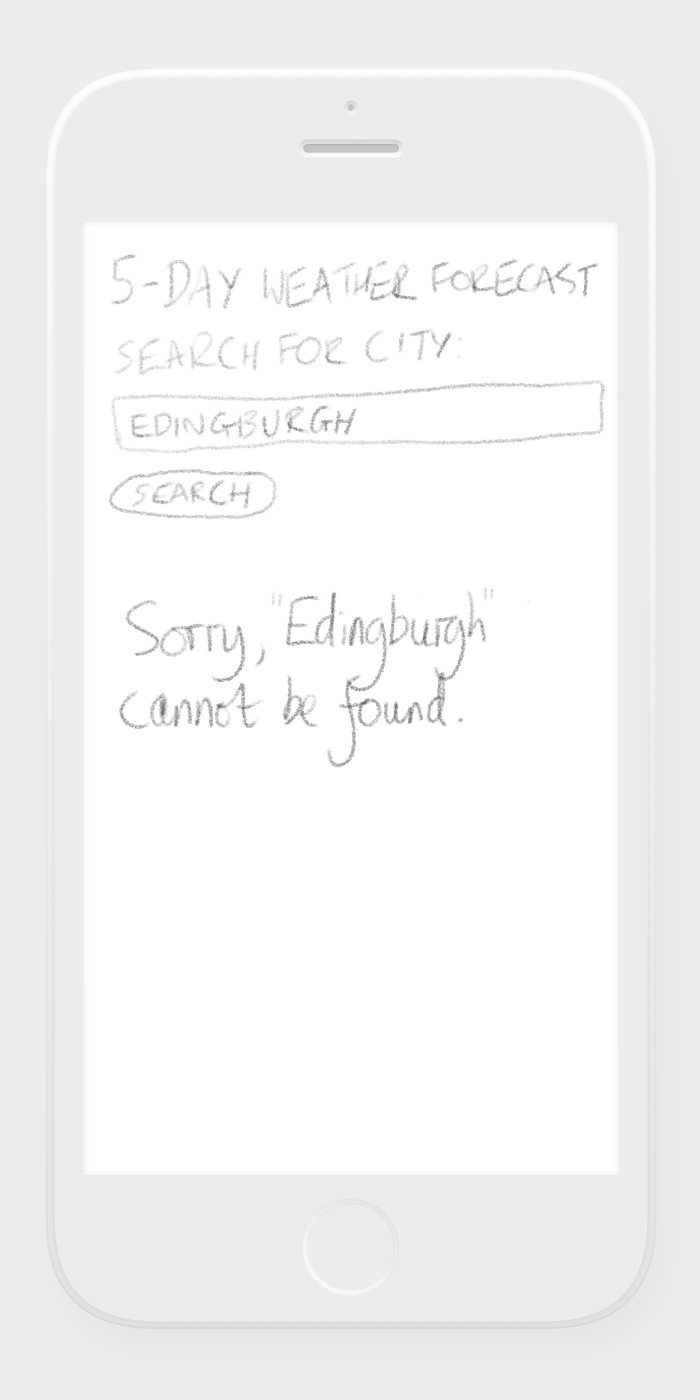 5-DAY WEATHER FORECAST
SEARCH FOR CITY:
EDINGBURGH
SEARCH
Sorry, "Edingburgh"
cannot be found.